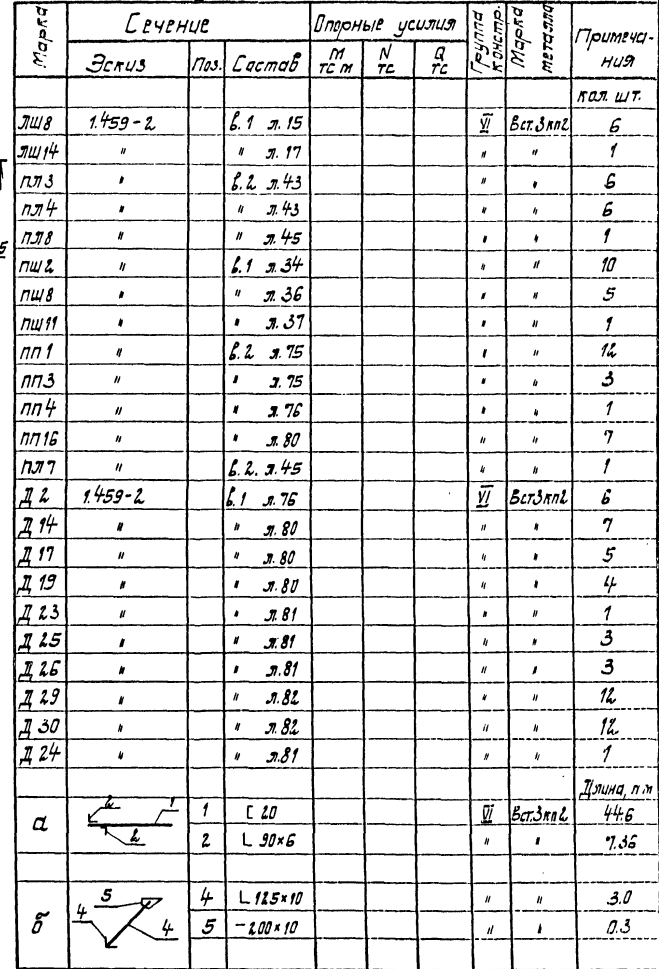 Марка Сечение Опорные усилия Группа констр. Марка металла Примеча-ния
Эскиз Поз. Состав М тс м N тс Q тс
кол. шт.
ЛШ8 1.459-2 в.1 л.15 VI Вст.3кп2 6
ЛШ14 " " л.17 " " 1
ПЛ3 " в.2 л.43 " " 6
ПЛ4 " " л.43 " " 6
ПЛ8 " " л.45 " " 1
ПШ2 " в.1 л.34 " " 10
ПШ8 " " л.36 " " 5
ПШ11 " " л.37 " " 1
ПП1 " в.2 л.75 " " 12
ПП3 " " л.75 " " 3
ПП4 " " л.76 " " 1
ПП16 " " л.80 " " 7
ПЛ7 " в.2. л.45 " " 1
Д2 1.459-2 в.1 л.76 VI Вст3кп2 6
Д14 " " л.80 " " 7
Д17 " " л.80 " " 5
Д19 " " л.80 " " 4
Д23 " " л.81 " " 1
Д25 " " л.81 " " 3
Д26 " " л.81 " " 3
Д29 " " л.82 " " 12
Д30 " " л.82 " " 12
Д24 " " л.81 " " 1
Длина, п м
а 2 1 2 1 [ 20 VI Вст.3кп2 44.6
2 L 90×6 " " 7.36
б 5 4 4 4 L 125×10 " " 3.0
5 -200×10 " " 0.3